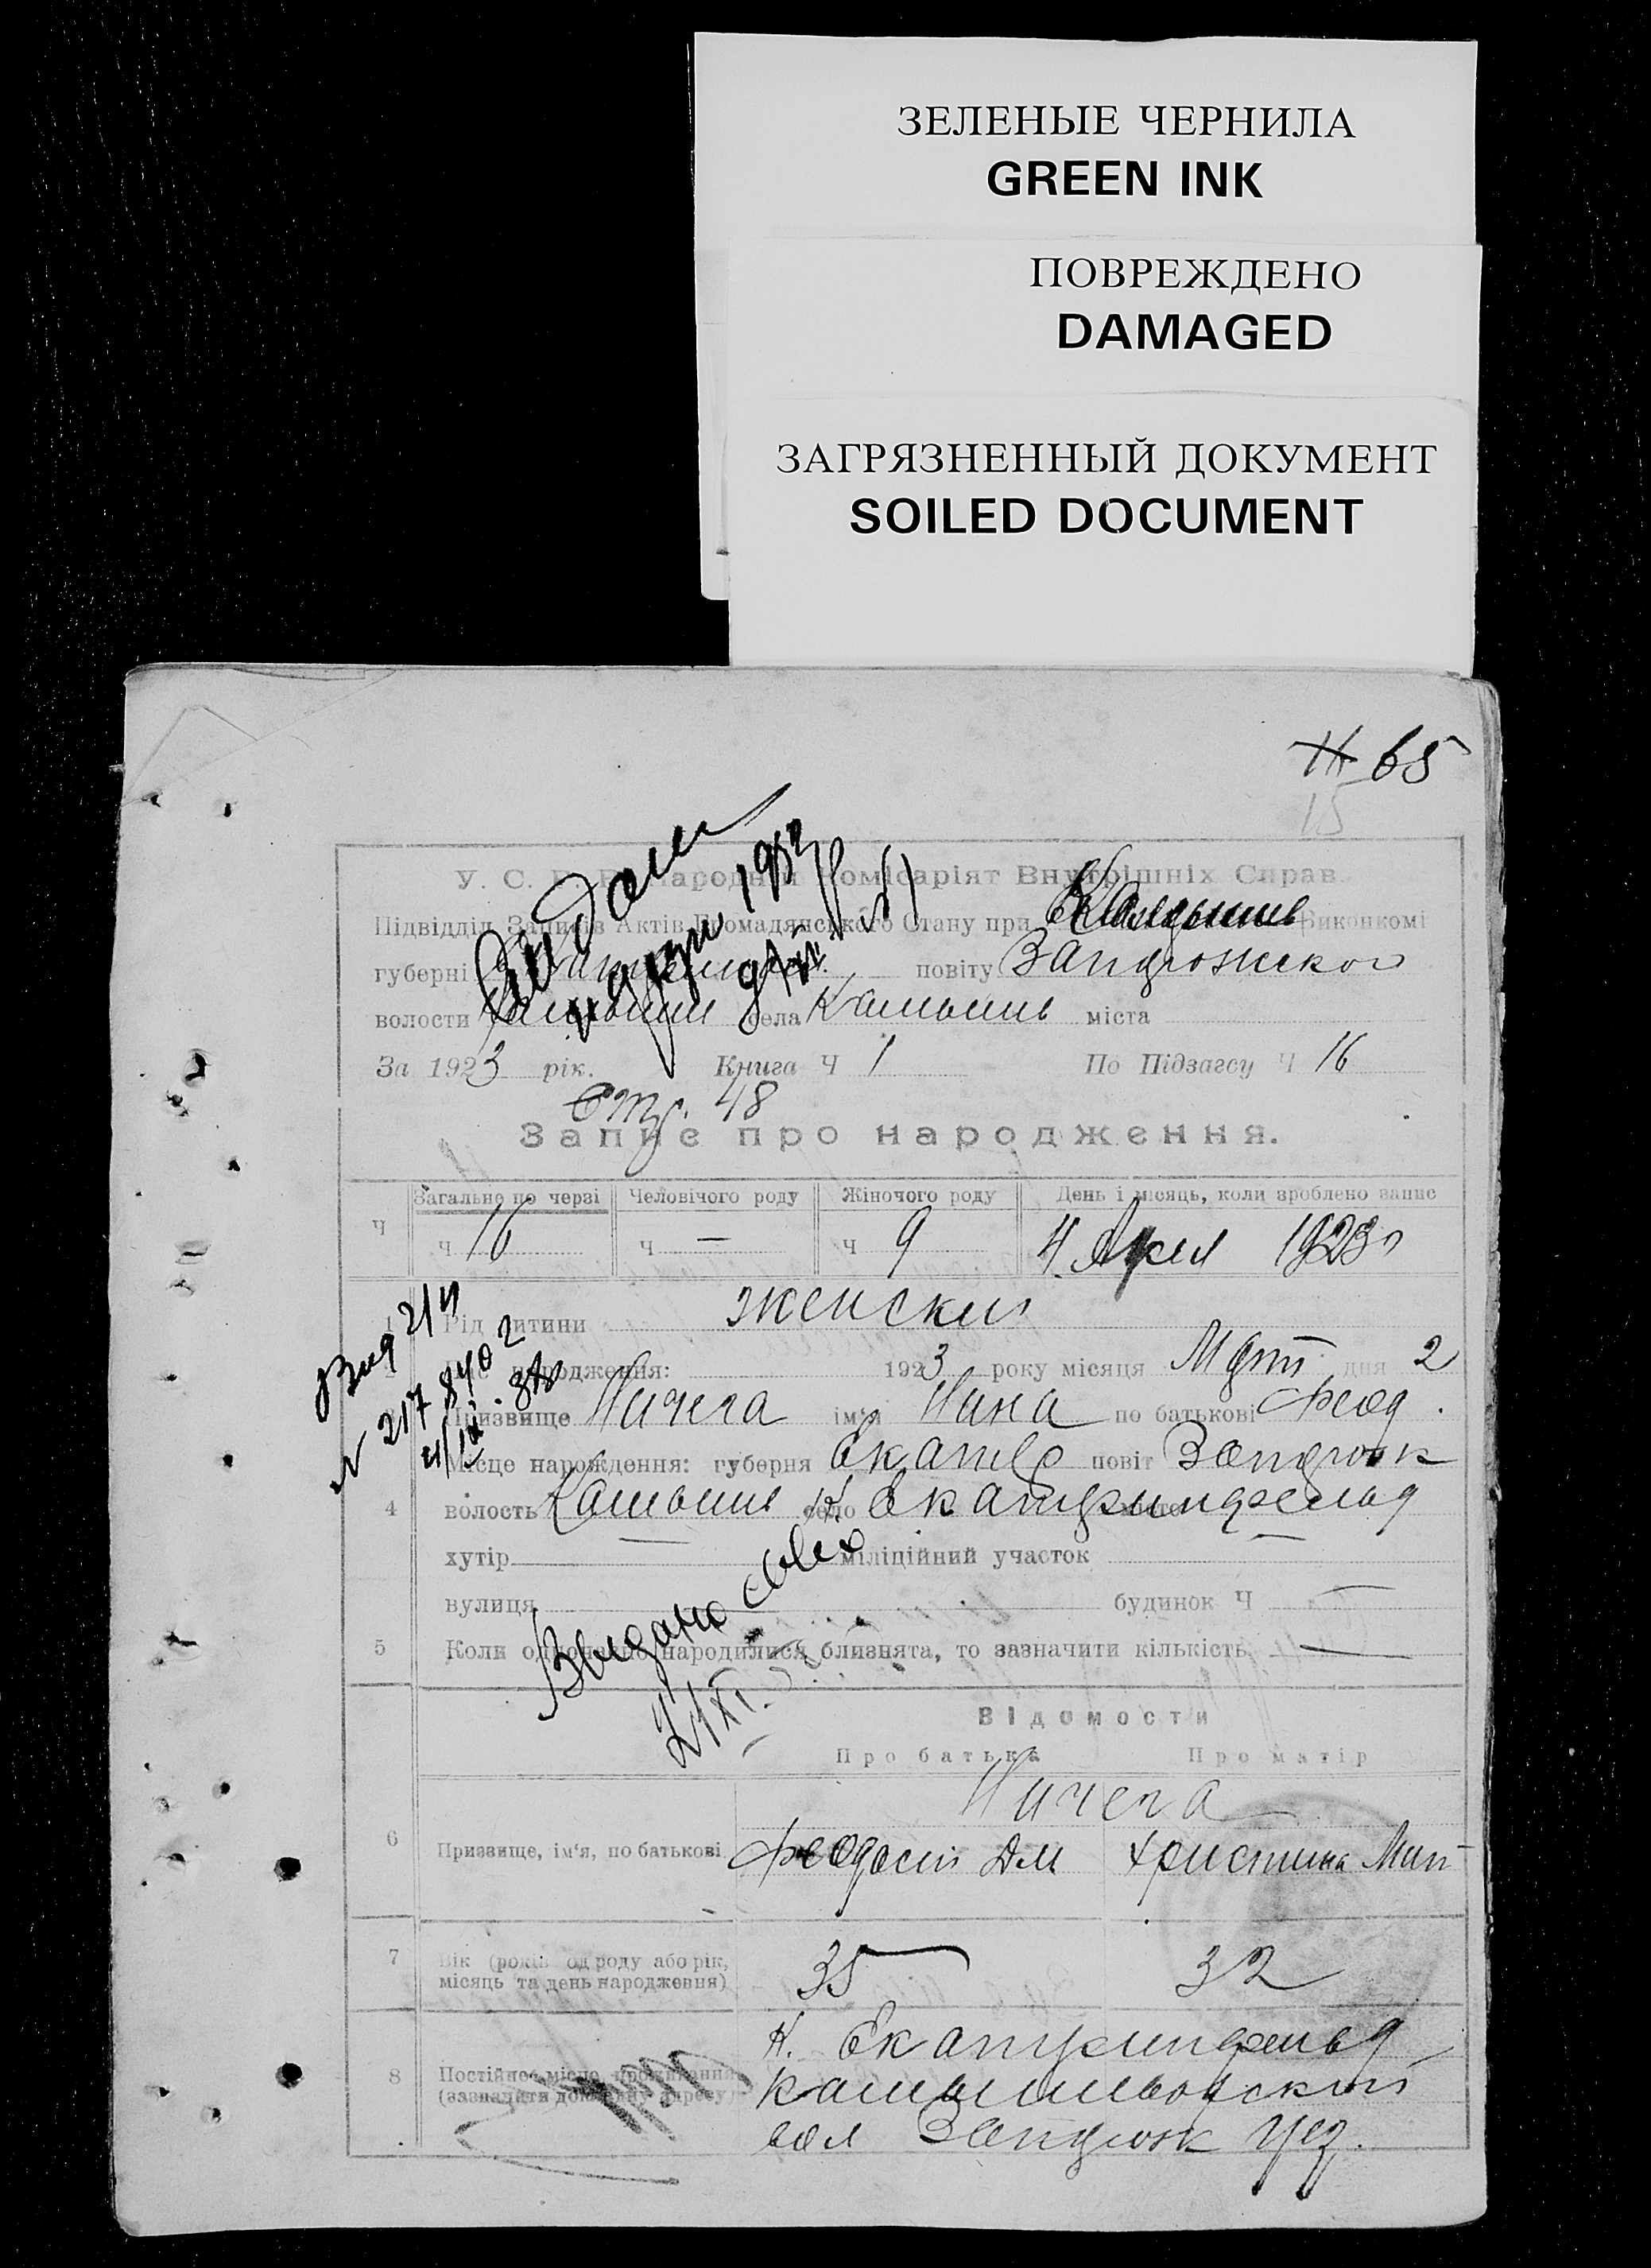 ЗЕЛЕНЫЕ ЧЕРНИЛА
GREEN INK
ПОВРЕЖДЕНО
DAMAGED
ЗАГРЯЗНЕННЫЙ ДОКУМЕНТ
SOILED DOCUMENT
65
15
У. С. Народний Комісаріят Внутрішніх Справ
Підвідділ Записів Актів Громадянського Стану при Виконкомі
губерні повіту Запорожского
волости села Камышев міста
За 1923 рік. Книга Ч 1 По Підзагсу Ч 16
Стр. 48
Запис про народження.
Загальне по черзі Человічого роду Жіночого роду День і місяць, коли зроблено запис
Ч ч 16 ч — ч 9 4 Апрел 1923 г
1 Рід дитини женский
народження: 1923 року місяця Март дня 2
Призвище Ничега ім'я Нина по батькові Феод.
Місце народження: губерня Екатер повіт Запорож
4 волость Камышев село Н Екатеринфельд
хутір міліційний участок
вулиця будинок Ч —
5 Коли одночасно народилися близнята, то зазначити кількість —
Выдано
21/XI
Відомости
Про батька Про матір
Ничега
6 Призвище, ім'я, по батькові Феодосий Дм Христина Мит
7 Вік (років од роду або рік, 35 32
місяць та день народження)
Н. Екатеринфельд
8 Постійне місце Камышеватской
вол Запорож уез.